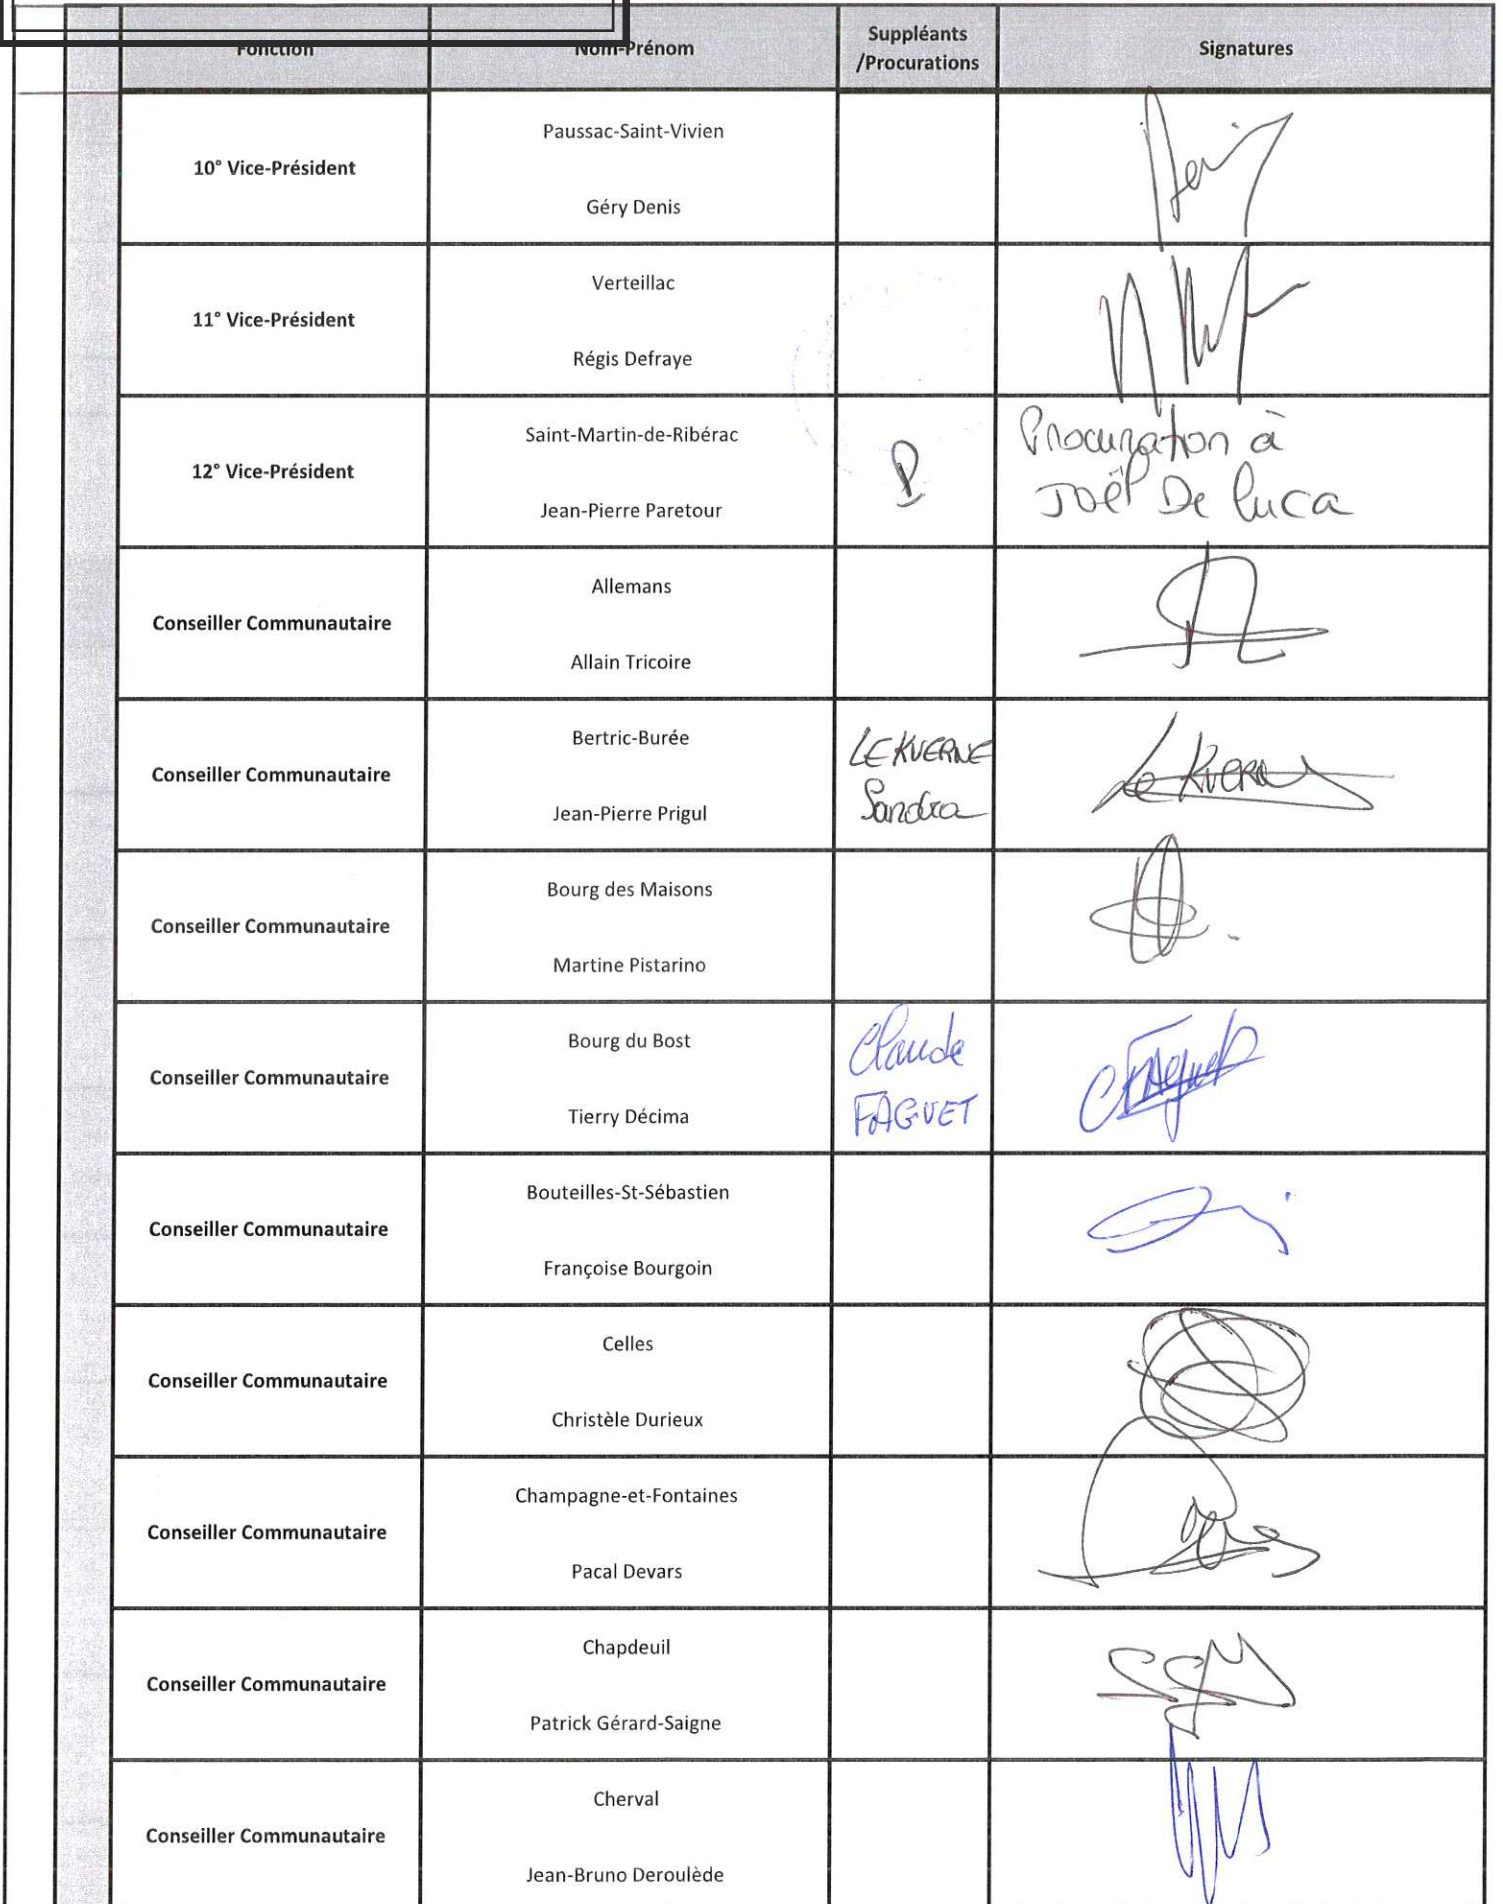 Fonction
Nom-Prénom
Suppléants
/Procurations
Signatures
10° Vice-Président
Paussac-Saint-Vivien
Géry Denis
11° Vice-Président
Verteillac
Régis Defraye
12° Vice-Président
Saint-Martin-de-Ribérac
Jean-Pierre Paretour
P
Procuration à
Joël De Luca
Conseiller Communautaire
Allemans
Allain Tricoire
Conseiller Communautaire
Bertric-Burée
Jean-Pierre Prigul
LEKVERNE
Sandra
Conseiller Communautaire
Bourg des Maisons
Martine Pistarino
Conseiller Communautaire
Bourg du Bost
Tierry Décima
Claude
FAGUET
Conseiller Communautaire
Bouteilles-St-Sébastien
Françoise Bourgoin
Conseiller Communautaire
Celles
Christèle Durieux
Conseiller Communautaire
Champagne-et-Fontaines
Pacal Devars
Conseiller Communautaire
Chapdeuil
Patrick Gérard-Saigne
Conseiller Communautaire
Cherval
Jean-Bruno Deroulède